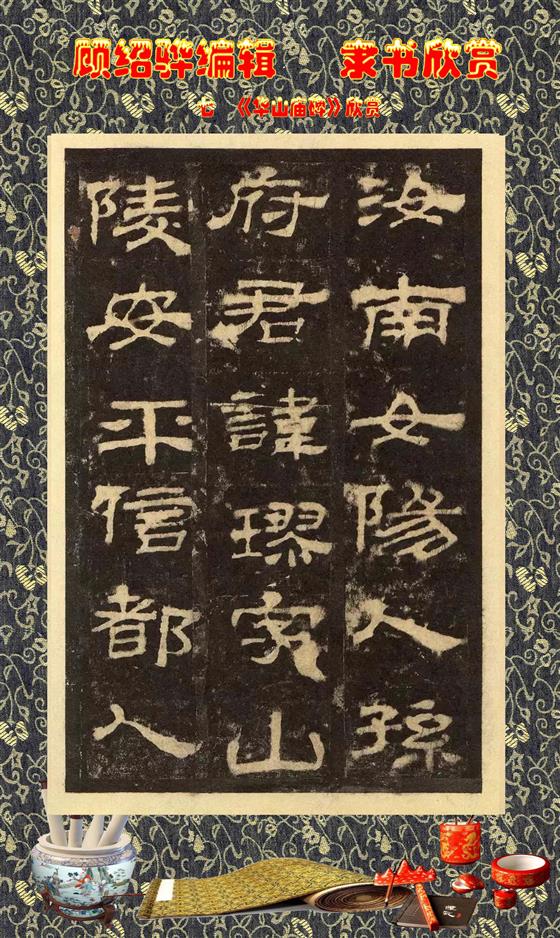 顾绍骅编辑 隶书欣赏
《华山庙碑》欣赏
汝南女陽人孫
府君諱璆字山
陵安平信都人